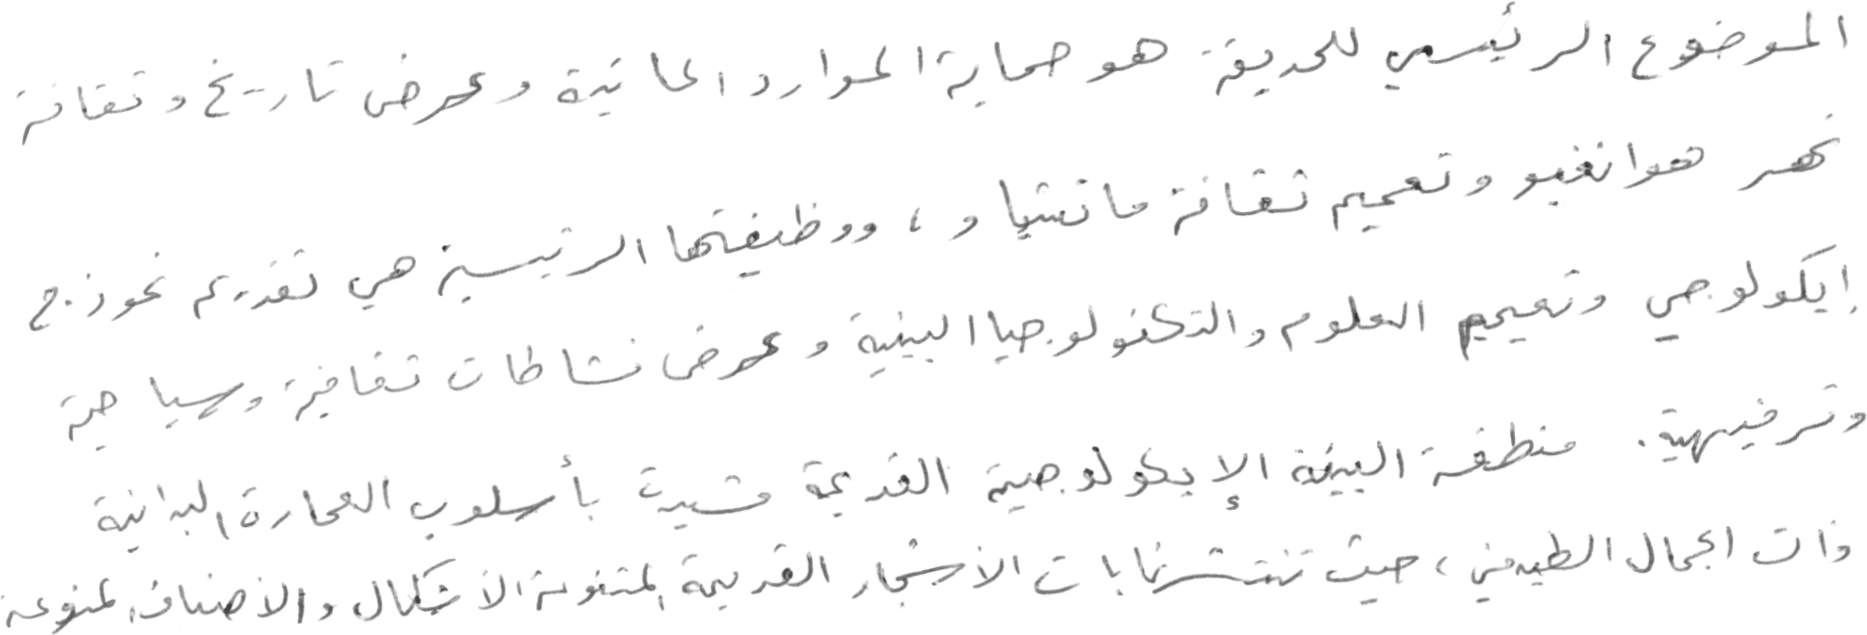 الموضوع الرئيسي للحديقة هو حماية الموارد المائية وعرض تاريخ وثقافة
نهر هوانغبو وتعميم ثقافة ماتشياو، ووظيفتها الرئيسية هي تقديم نموذج
إيكولوجي وتعميم العلوم والتكنولوجيا البيئية وعرض نشاطات ثقافية وسياحية
وترفيهية. منطقة البيئة الإيكولوجية القديمة شيدت بأسلوب العمارة البدائية
ذات الجمال الطبيعي، حيث تنتشر غابات الأشجار القديمة المتنوعة الأشكال والأصناف المنوعة